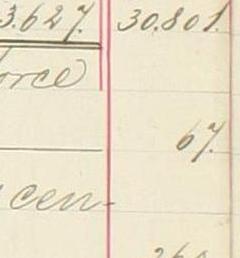 3.627. 30.801.
orce
67.
cen-